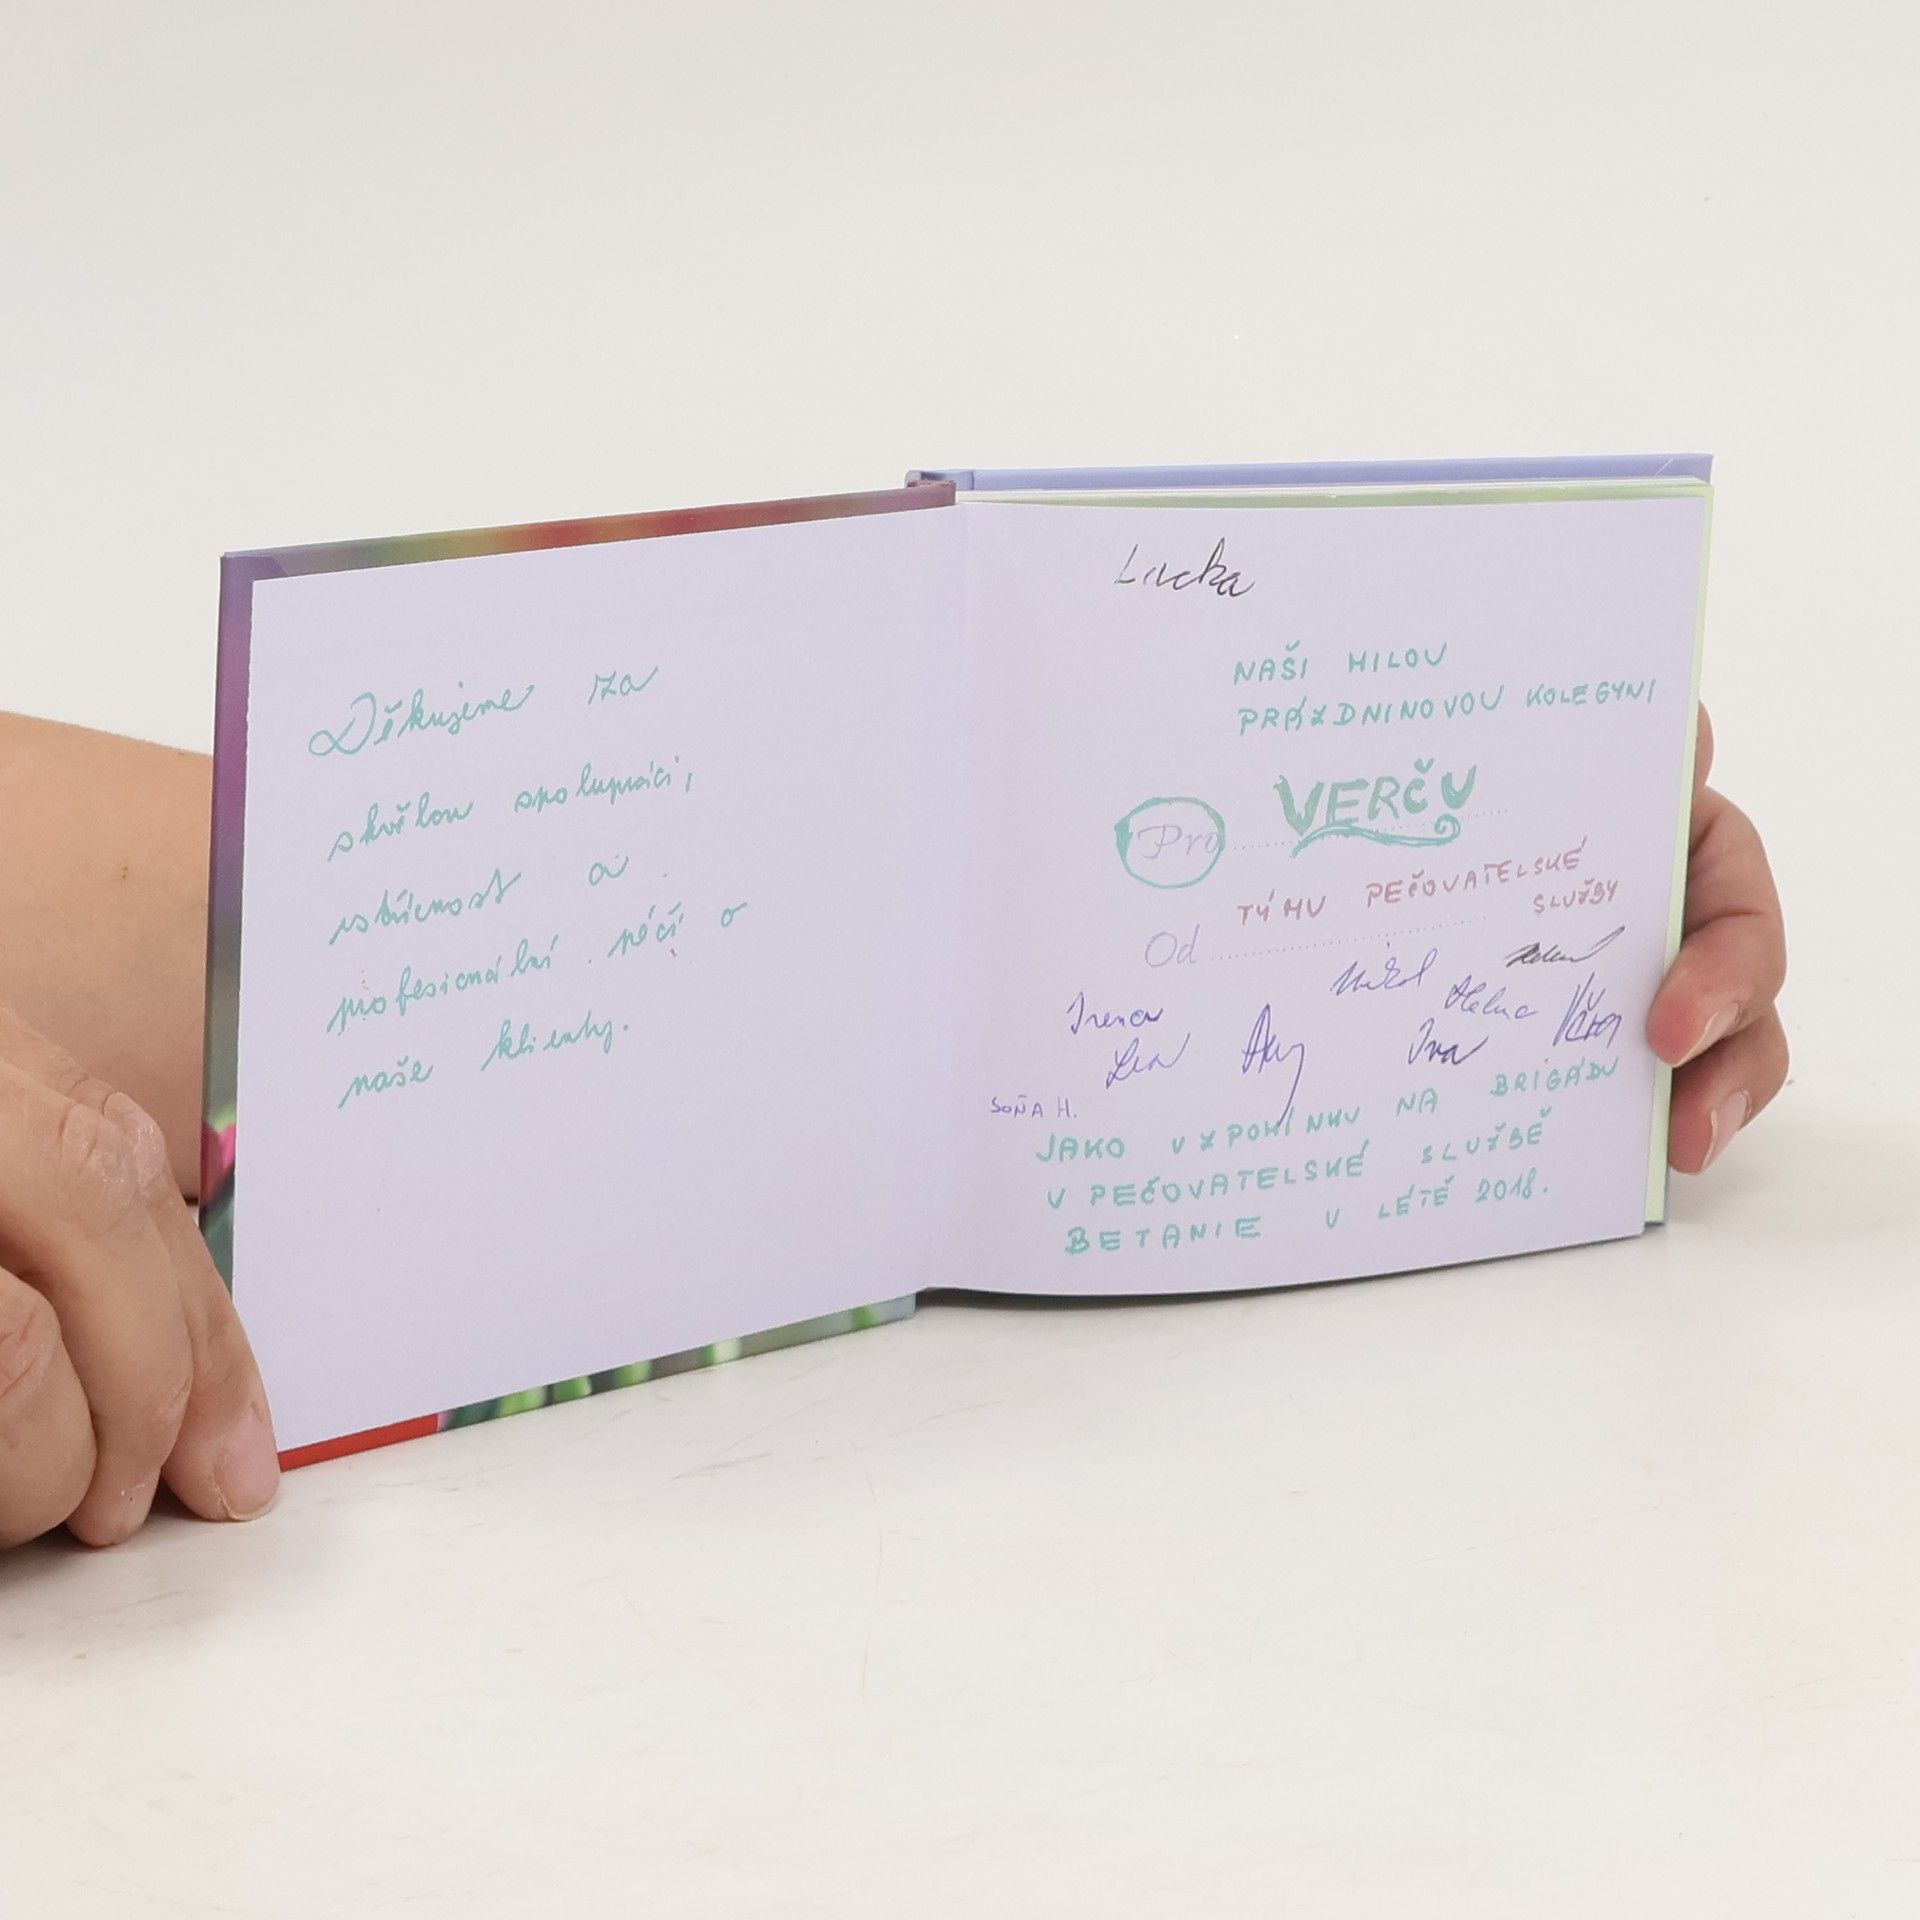 Děkujeme za
skvělou spolupráci,
vstřícnost a
profesionální péči o
naše klienty.
Lucka
NAŠI MILOU
PRÁZDNINOVOU KOLEGYNI
Pro VERČU
TÝMU PEČOVATELSKÉ
SLUŽBY
Od
Irena
Helena
Věra
Iva
SOŇA H.
JAKO VZPOMÍNKU NA BRIGÁDU
V PEČOVATELSKÉ SLUŽBĚ
BETANIE V LÉTĚ 2018.